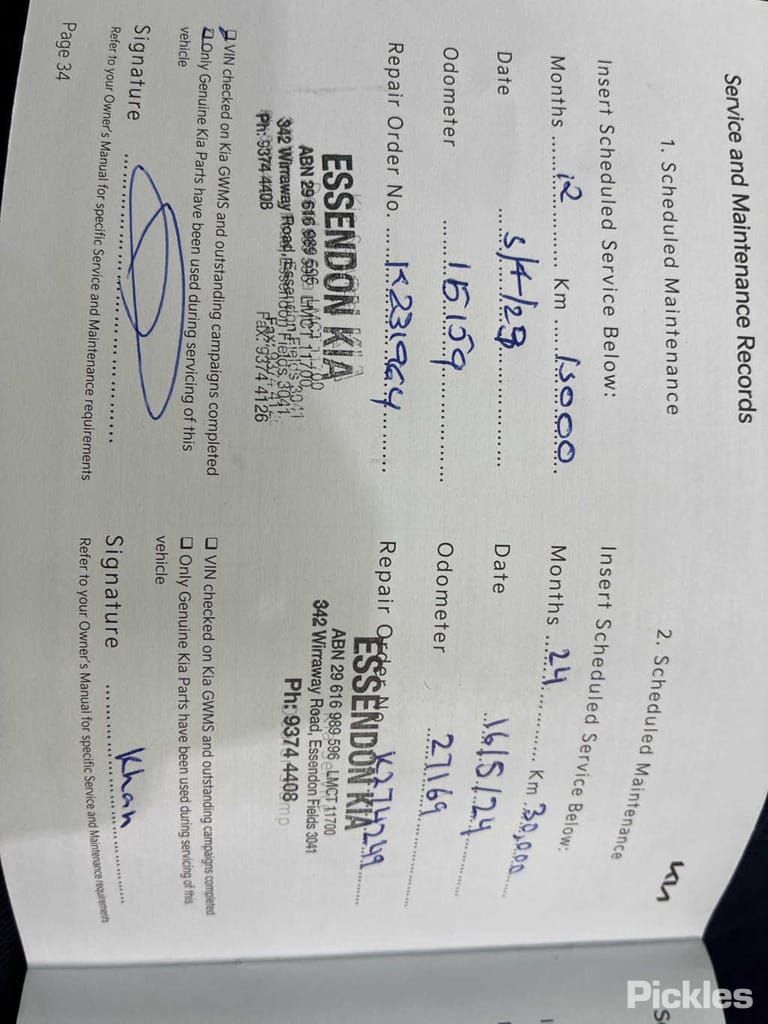 Service and Maintenance Records
1. Scheduled Maintenance
Insert Scheduled Service Below:
Months ......12............ Km .....15000..
Date .....5/4/23..................
Odometer ........15159..................
Repair Order No. .....K231964.........
ESSENDON KIA
ABN 29 616 989 596 LMCT 11700
342 Wirraway Road, Essendon Fields 3041
Ph: 9374 4408 Fax: 9374 4126
VIN checked on Kia GWMS and outstanding campaigns completed
Only Genuine Kia Parts have been used during servicing of this
vehicle
Signature ........................................
Refer to your Owner's Manual for specific Service and Maintenance requirements
Page 34
2. Scheduled Maintenance
Insert Scheduled Service Below:
Months ...24............ Km 30,000
Date ..16/5/24..............
Odometer .....27169..................
Repair Order No. K274249......
ESSENDON KIA
ABN 29 616 989 596 LMCT 11700
342 Wirraway Road, Essendon Fields 3041
Ph: 9374 4408
☐ VIN checked on Kia GWMS and outstanding campaigns completed
☐ Only Genuine Kia Parts have been used during servicing of this
vehicle
Signature ........Khan............
Refer to your Owner's Manual for specific Service and Maintenance requirements
Pickles